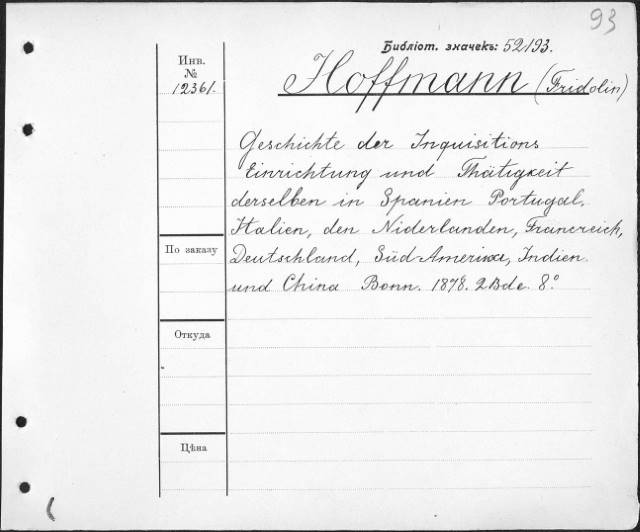 93
Библіот. значекъ: 52193.
Инв.
№
12361.
Hoffmann (Fridolin)
Geschichte der Inquisitions
Einrichtung und Thätigkeit
derselben in Spanien Portugal,
Italien, den Niderlanden, Francreich,
Deutschland, Süd-Amerika, Indien
und China Bonn. 1878. 2 Bde. 8°
По заказу
Откуда
Цѣна